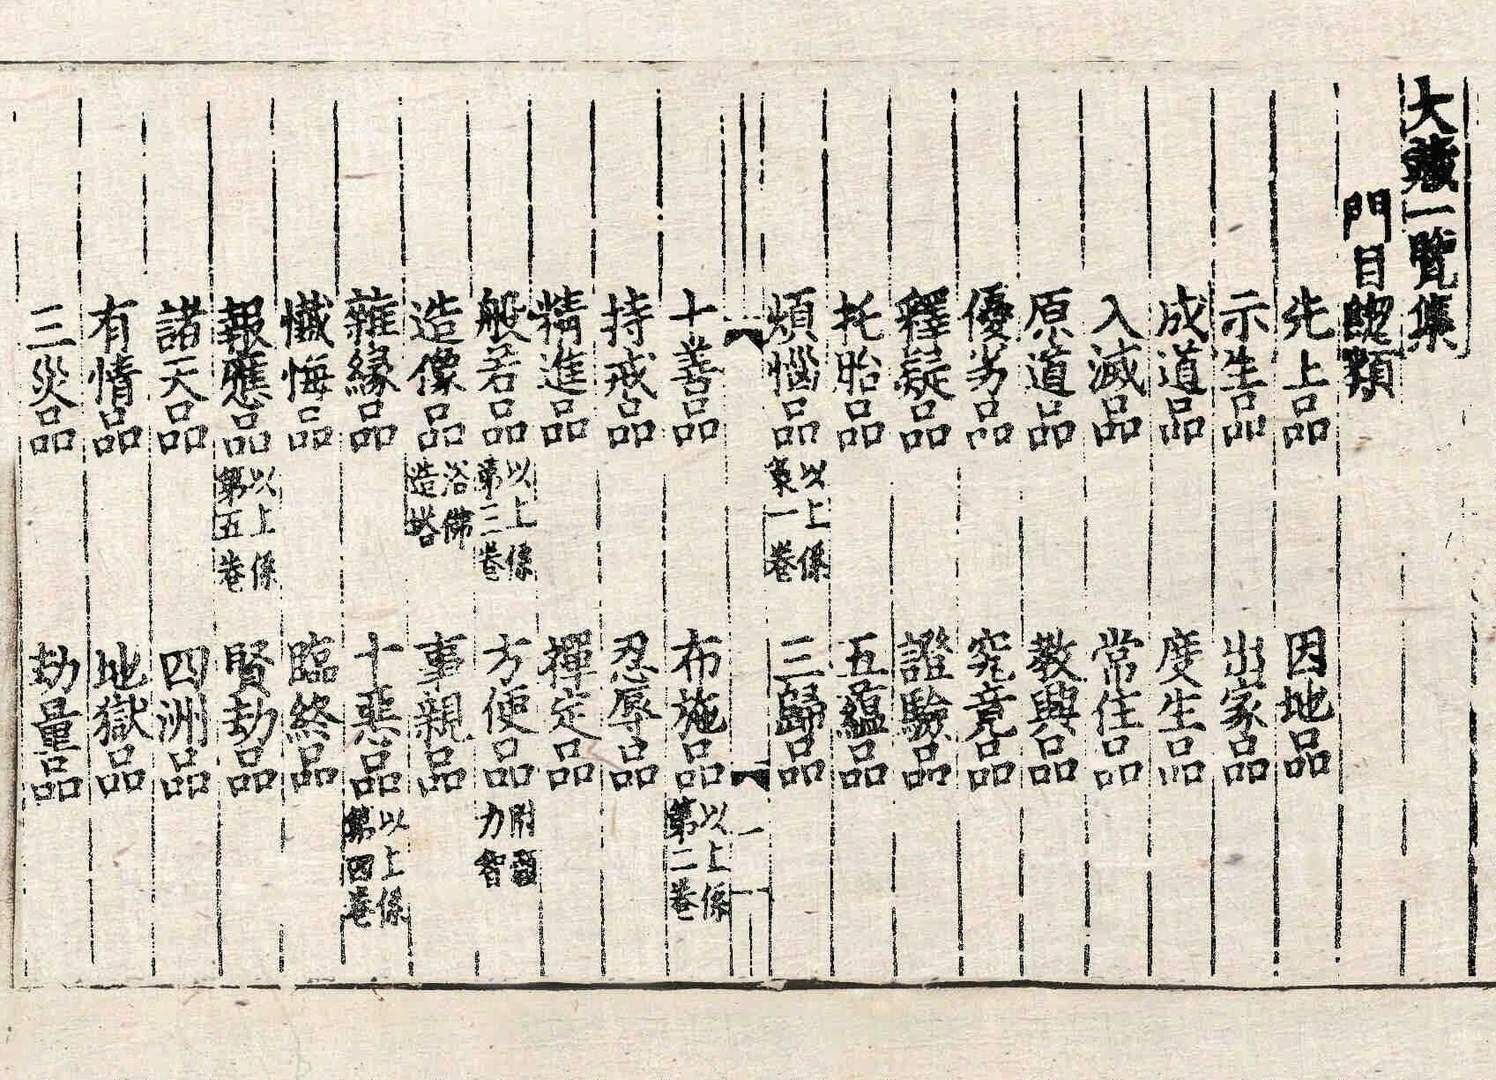 大藏一覽集
門目類
先上品 因地品
示生品 出家品
成道品 度生品
入滅品 常住品
原道品 教興品
優劣品 究竟品
釋疑品 證驗品
托胎品 五蘊品
煩惱品 以上係第一卷 三歸品
一
十善品 布施品 以上係第二卷
持戒品 忍辱品
精進品 禪定品
般若品 以上係第三卷 方便品 附願力智
造像品 浴佛造塔 事親品
雜緣品 十惡品 以上係第四卷
懺悔品 臨終品
報應品 以上係第五卷 賢劫品
諸天品 四洲品
有情品 地獄品
三災品 劫量品